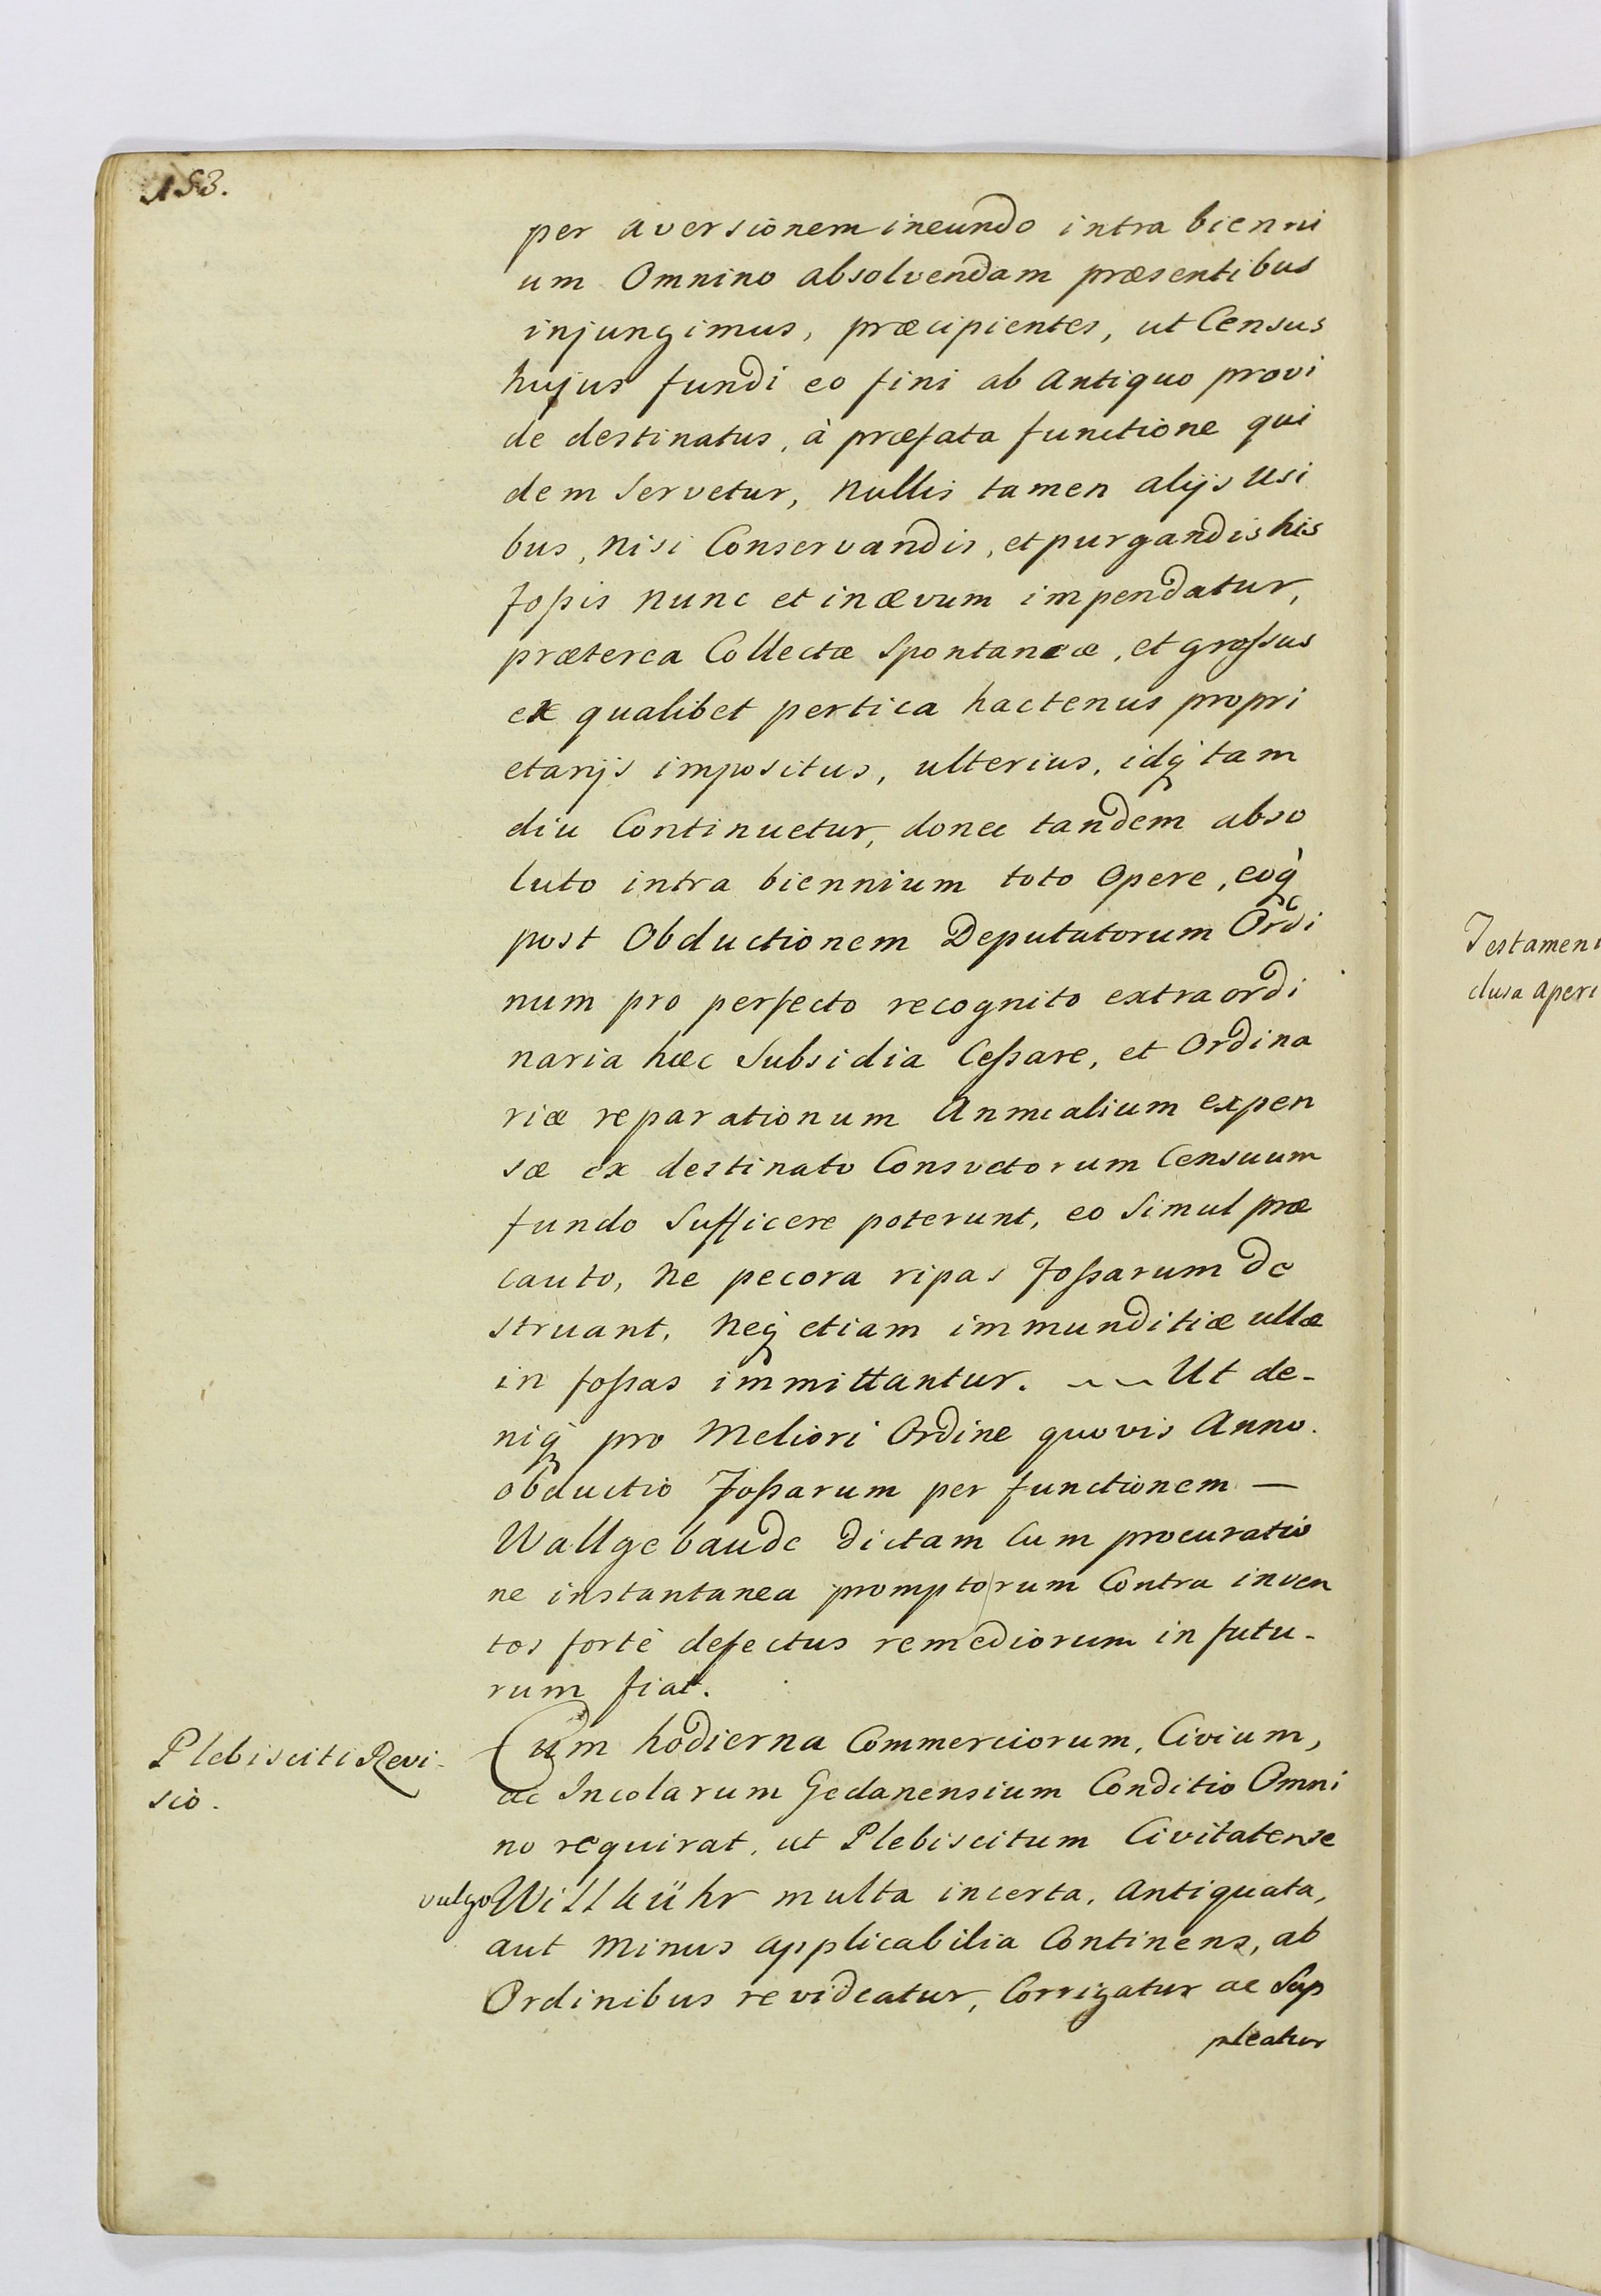 153.
per aversionem ineundo intra bienni
um Omnino absolvendam præsentibus
injungimus, præcipientes, ut Census
hujus fundi eo fini ab antiquo provi
de destinatus, à præfata functione qui
dem servetur, nullis tamen alijs usi
bus, nisi Conservandis, et purgandis his
foßis nunc et in ævum impendatur,
præterea Collectæ Spontaneæ, et großus
ex qualibet pertica hactenus propri
etarijs impositus, ulterius, idq̀ tam
diu Continuetur, donec tandem abso
luto intra biennium toto Opere, eoq̀
post Obductionem Deputatorum Ordi
num pro perfecto recognito extraordi
naria hæc Subsidia Ceßare, et Ordina
riæ reparationum Annualium expen
sæ ex destinato Consvetorum Censuum
fundo Sufficere poterunt, eo Simul præ
cauto, ne pecora ripas foßarum de
struant, neq̀ etiam immunditiæ ullæ
in foßas immittantur. ~~ Ut de-
niq̀ pro Meliori Ordine quovis Anno.
obductio foßarum per functionem —
Wallgebaude dictam Cum procuratio
ne instantanea promptorum Contra inven
tos fortè defectus remediorum in futu-
rum fiat.
Plebisciti Revi-
sio.
Cum hodierna Commerciorum, Civium,
ac Incolarum Gedanensium Conditio Omni
no requirat, ut Plebiscitum Civitatense
vulgo Willkühr multa incerta, Antiquata,
aut Minus applicabilia Continens, ab
Ordinibus revideatur, Corrigatur ac Sup
pleatur
Testamen
clusa aperi